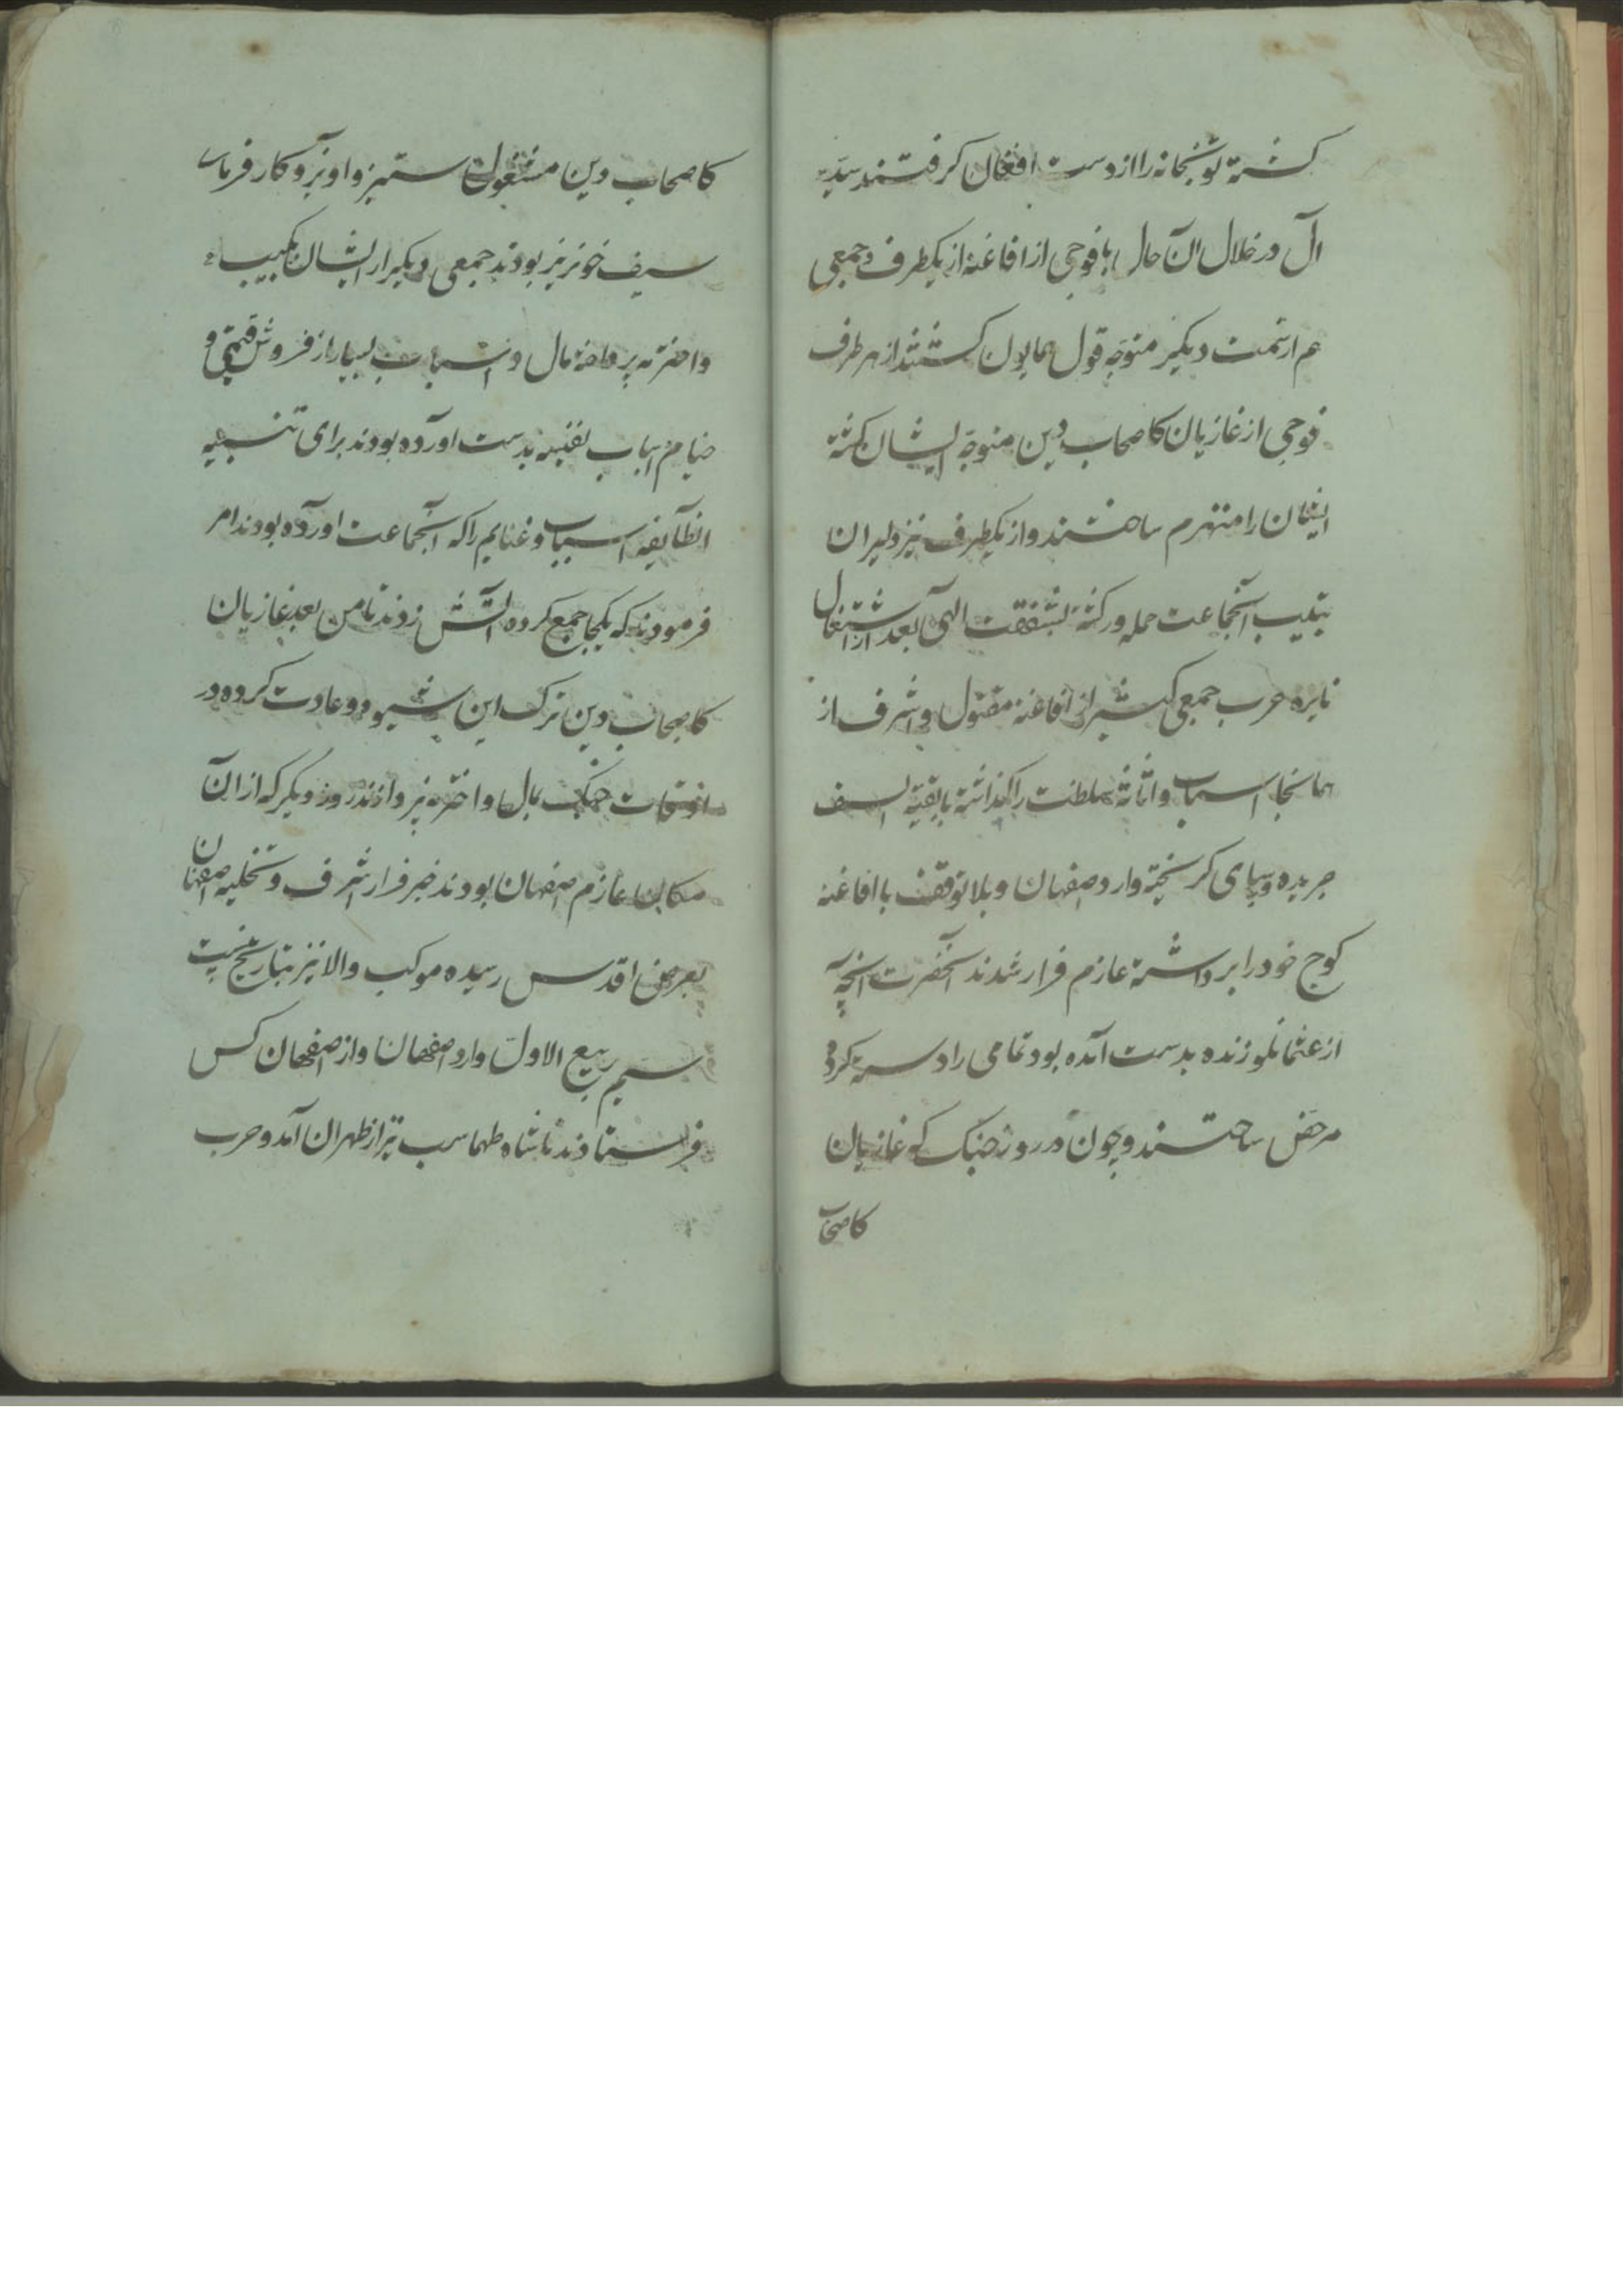 کشته توپخانه را از دست افغان کرفتند سیّد
آل در خلال آن حال با فوجی از افاغنه از یکطرف و جمعی
هم از سمت دیکر متوجّه قول همایون کشتند از هر طرف
فوجی از غازیان کاصحاب دین متوجّه ایشان کشته
ایشان را منهزم ساختند و از یکطرف نیز دلیران
بتادیب آنجماعت حمله ور کشته بشفقت الهی بعد از اشتغال
نایره حرب جمعی کثیر از افاغنه مقتول و اشرف از
همانجا اسباب و اثاثه سلطنت را کذاشته با بقیّة السیف
جریده و بپای کریخته وارد صفهان و بلا توقف با افاغنه
کوچ خود را برداشته عازم فرار شدند آنحضرت آنچه
از عثمانلو زنده بدست آمده بود تمامی را دسته کرده
مرخص ساختند و چون در روز جنک که غازیان
کاصحاب
کاصحاب دین مشغول ستیز و اویز و کارفرمای
سیف خونریز بودند جمعی دیکر از ایشان بکسب
و اخذ پرداخته مال و اسباب بسیار از فروش قیمتی و
خیام و اسباب نفیسه بدست آورده بودند برای تنبیه
انطآیفه اسباب و غنایم را که آنجماعت اورده بودند امر
فرمودند که یکجا جمع کرده آتش زدند تا من بعد غازیان
کاصحاب دین ترک این شیوه و عادت کرده در
اوقات جنک بمال و اخذ نپردازند روز دیکر که از آن
مکان عازم اصفهان بودند خبر فرار اشرف و تخلیه اصفهان
بعرض اقدس رسیده موکب والا نیز بتاریخ بیست
سیم ربیع الاول وارد اصفهان و از اصفهان کس
فرستادند تا شاه طهماسب نیز از طهران آمد و حرب